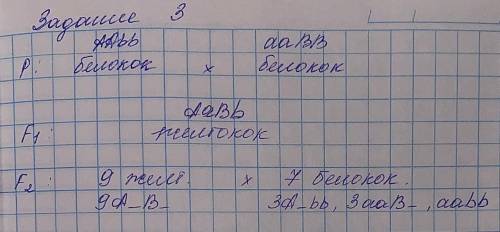 Задание 3
AAbb aaBB
P: белокок x белокок
AaBb
F₁: желтокок
F₂: 9 желт. x 7 белокок.
9A_B_ 3A_bb, 3aaB_, aabb